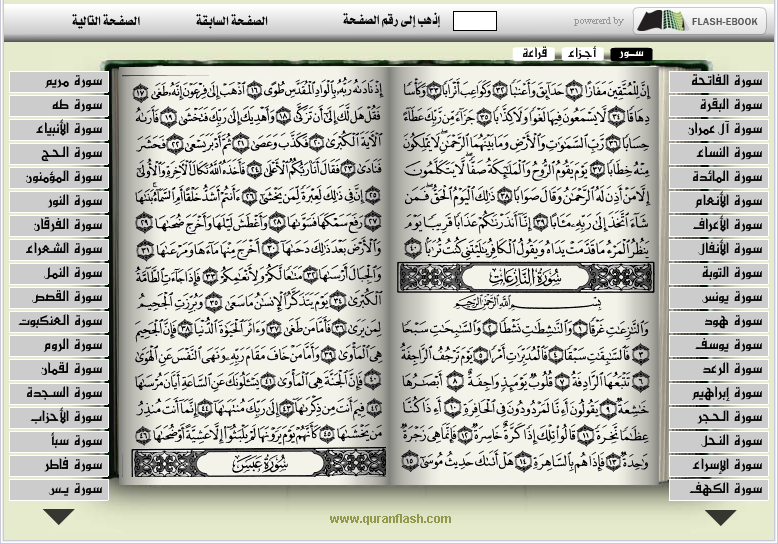 FLASH-EBOOK
powererd by
إذهب إلى رقم الصفحة
الصفحة السابقة
الصفحة التالية
سـور
أجـزاء
قراءة
سورة الفاتحة
سورة البقرة
سورة آل عمران
سورة النساء
سورة المائدة
سورة الأنعام
سورة الأعراف
سورة الأنفال
سورة التوبة
سورة يونس
سورة هود
سورة يوسف
سورة الرعد
سورة إبراهيم
سورة الحجر
سورة النحل
سورة الإسراء
سورة الكهف
إن للمتقين مفازا ٣١ حدائق وأعنبا ٣٢ وكواعب أترابا ٣٣ وكأسا
دهاقا ٣٤ لا يسمعون فيها لغوا ولا كذبا ٣٥ جزاء من ربك عطاء
حسابا ٣٦ رب السموت والأرض وما بينهما الرحمن لا يملكون
منه خطابا ٣٧ يوم يقوم الروح والملئكة صفا لا يتكلمون
إلا من أذن له الرحمن وقال صوابا ٣٨ ذلك اليوم الحق فمن
شاء اتخذ إلى ربه مئابا ٣٩ إنا أنذرنكم عذابا قريبا يوم
ينظر المرء ما قدمت يداه ويقول الكافر يليتني كنت تربا ٤٠
سورة النازعات
بسم الله الرحمن الرحيم
والنزعت غرقا ١ والنشطت نشطا ٢ والسبحت سبحا
٣ فالسبقت سبقا ٤ فالمدبرت أمرا ٥ يوم ترجف الراجفة
٦ تتبعها الرادفة ٧ قلوب يومئذ واجفة ٨ أبصرها
خشعة ٩ يقولون أءنا لمردودون في الحافرة ١٠ أءذا كنا
عظما نخرة ١١ قالوا تلك إذا كرة خاسرة ١٢ فإنما هي زجرة
وحدة ١٣ فإذا هم بالساهرة ١٤ هل أتىك حديث موسى ١٥
إذ نادىه ربه بالواد المقدس طوى ١٦ اذهب إلى فرعون إنه طغى ١٧
فقل هل لك إلى أن تزكى ١٨ وأهديك إلى ربك فتخشى ١٩ فأرىه
الأية الكبرى ٢٠ فكذب وعصى ٢١ ثم أدبر يسعى ٢٢ فحشر
فنادى ٢٣ فقال أنا ربكم الأعلى ٢٤ فأخذه الله نكال الأخرة والأولى
٢٥ إن في ذلك لعبرة لمن يخشى ٢٦ ءأنتم أشد خلقا أم السماء بنىها
٢٧ رفع سمكها فسوىها ٢٨ وأغطش ليلها وأخرج ضحىها ٢٩
والأرض بعد ذلك دحىها ٣٠ أخرج منها ماءها ومرعىها ٣١
والجبال أرسىها ٣٢ متعا لكم ولأنعمكم ٣٣ فإذا جاءت الطامة
الكبرى ٣٤ يوم يتذكر الإنسن ما سعى ٣٥ وبرزت الجحيم
لمن يرى ٣٦ فأما من طغى ٣٧ وءاثر الحيوة الدنيا ٣٨ فإن الجحيم
هي المأوى ٣٩ وأما من خاف مقام ربه ونهى النفس عن الهوى
٤٠ فإن الجنة هي المأوى ٤١ يسئلونك عن الساعة أيان مرسىها
٤٢ فيم أنت من ذكرىها ٤٣ إلى ربك منتهىها ٤٤ إنما أنت منذر
من يخشىها ٤٥ كأنهم يوم يرونها لم يلبثوا إلا عشية أو ضحىها ٤٦
سورة عبس
سورة مريم
سورة طه
سورة الأنبياء
سورة الحج
سورة المؤمنون
سورة النور
سورة الفرقان
سورة الشعراء
سورة النمل
سورة القصص
سورة العنكبوت
سورة الروم
سورة لقمان
سورة السجدة
سورة الأحزاب
سورة سبأ
سورة فاطر
سورة يس
www.quranflash.com